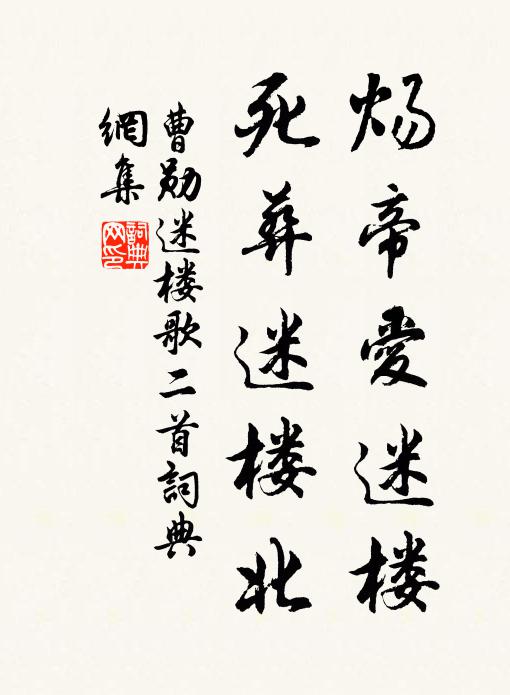 炀帝愛迷楼
死葬迷楼北
曹勋迷楼歌二首詞典
網集
詞典网印